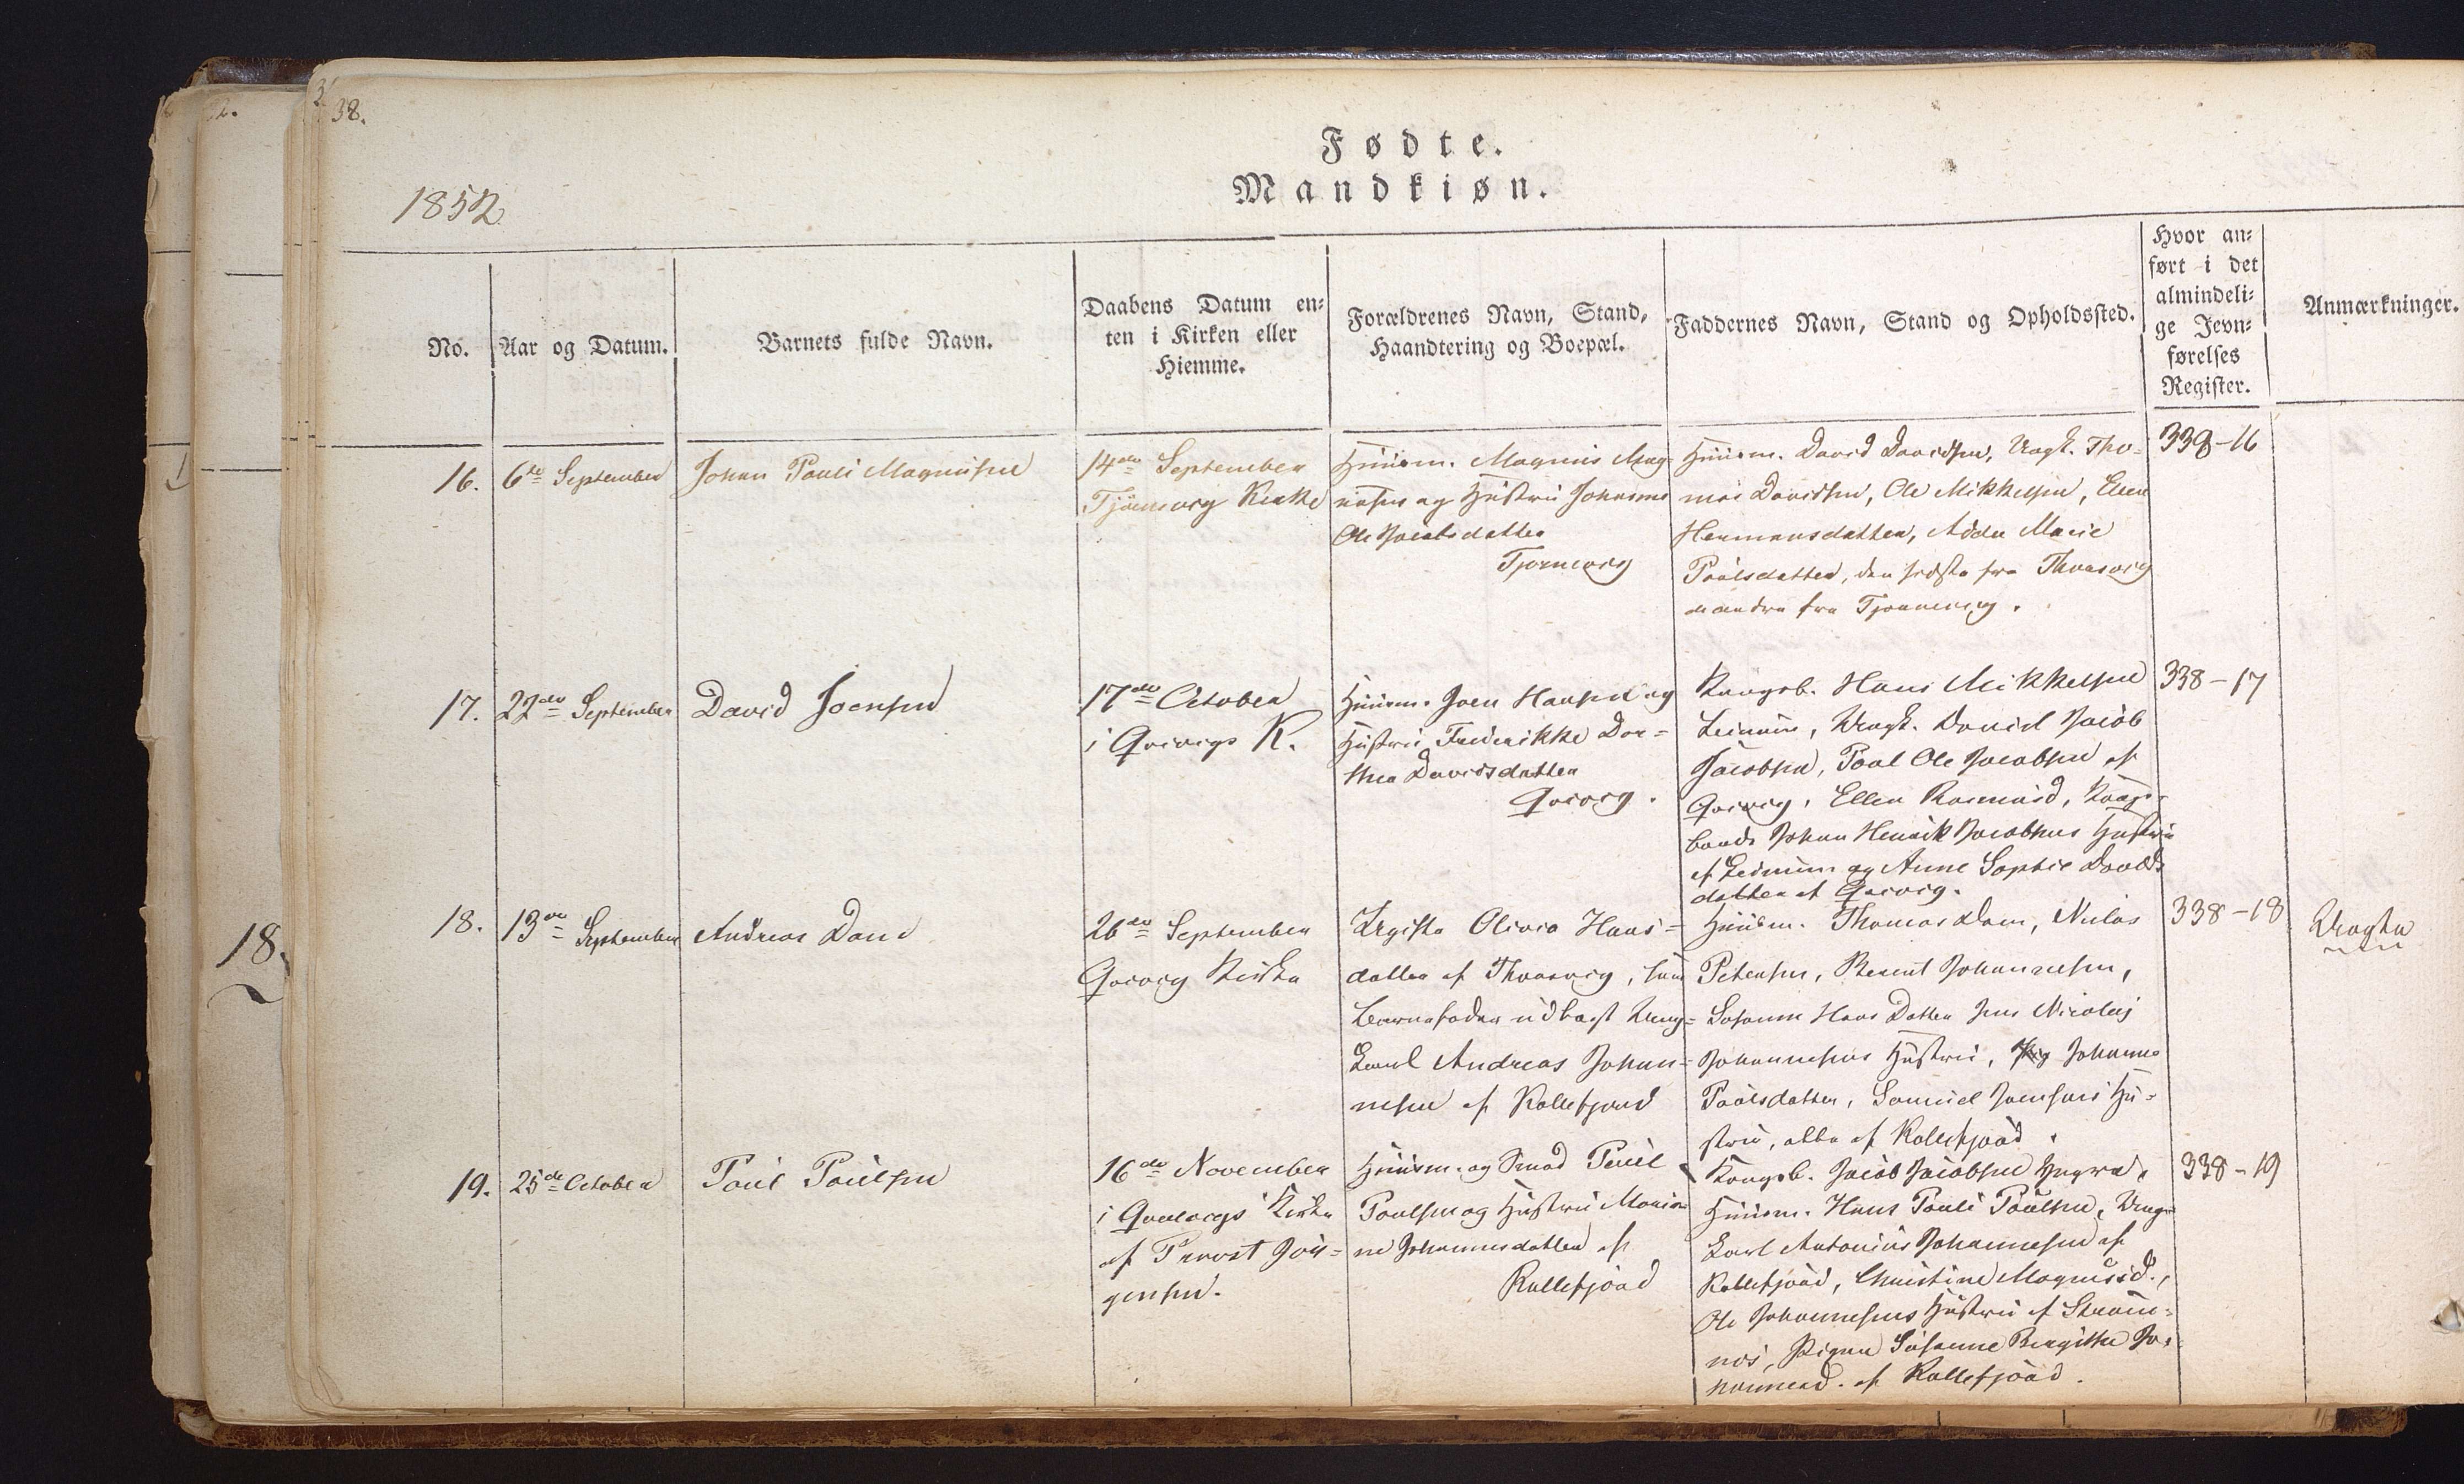 38.
Fødte.
Mandkiøn.
1852
No.
Aar og Datum.
Barnets fulde Navn.
Daabens Datum en-
ten i Kirken eller
Hiemme.
Forældrenes Navn, Stand,
Haandtering og Boepæl.
Faddernes Navn, Stand og Opholdssted.
Hvor an-
ført i det
almindeli-
ge Jevn-
førelses
Register.
Anmærkninger.
16.
6te September
Johan Pauli Magnussen
14de September
Tjörnevig Kirke
Huusm. Magnus Mag-
nussen og Hustru Johanne
Ole Jacobsdatter
Tjornevig
Huusm. David Davidsen, Ungk. Tho-
mas Davidsen, Ole Mikkelsen, Ellen
Hermansdatter, Adda Marie
Poulsdatter, den sidste fra Thorsvig
de andre fra Tjørnevig.
338-16
17.
22de September
David Joensen
17de October
i Qvivigs K.
Huusm. Joen Hansen og
Hustru Frederikke Dor-
thea Davidsdatter
Qvivig.
Kongsb. Hans Mikkelsen
Leinum, Ungk. Daniel Jacob
Jacobsen, Poul Ole Jacobsen af
Qvivig, Ellen Rasmusd, Kongs-
bonde Johan Henrik Jacobsens Hustru
af Leinum og Anne Sophie Davids
datter af Qvivig.
338-17
18.
18.
13de September
Andreas Dam
26de September
Qvivig Kirke
Ugifte Olivia Hans-
datter af Thorsvig, som
Barnefader udlagt Ung-
karl Andreas Johan-
nesen af Kollefjord
Huusm. Thomas Dam, Niclas
Petersen, Johannesen,
Susanne Hans Datter Jens Nicolaj
Johannesens Hustru, Johanne
Poulsdatter, Samuel Joensens Hu-
stru, alle af Kollefjord.
338-18
Uægte
19.
25de October
Poul Poulsen
16de November
i Qvalvigs Kirke
af Provst Jör-
gensen.
Huusm. og Smed Poul
Poulsen og Hustru Maria-
ne Johannesdatter af
Kollefjord
Kongsb. Jacob Jacobsen
Huusm. Hans Pauli Poulsen, Ung-
karl Antonius Johannesen af
Kollefjord, Christine Magnusd.,
Ole Johannesens Hustru af Strøm-
næs, Pigen Susanne Birgitte Jo-
hannesd. af Kollefjord.
338-19